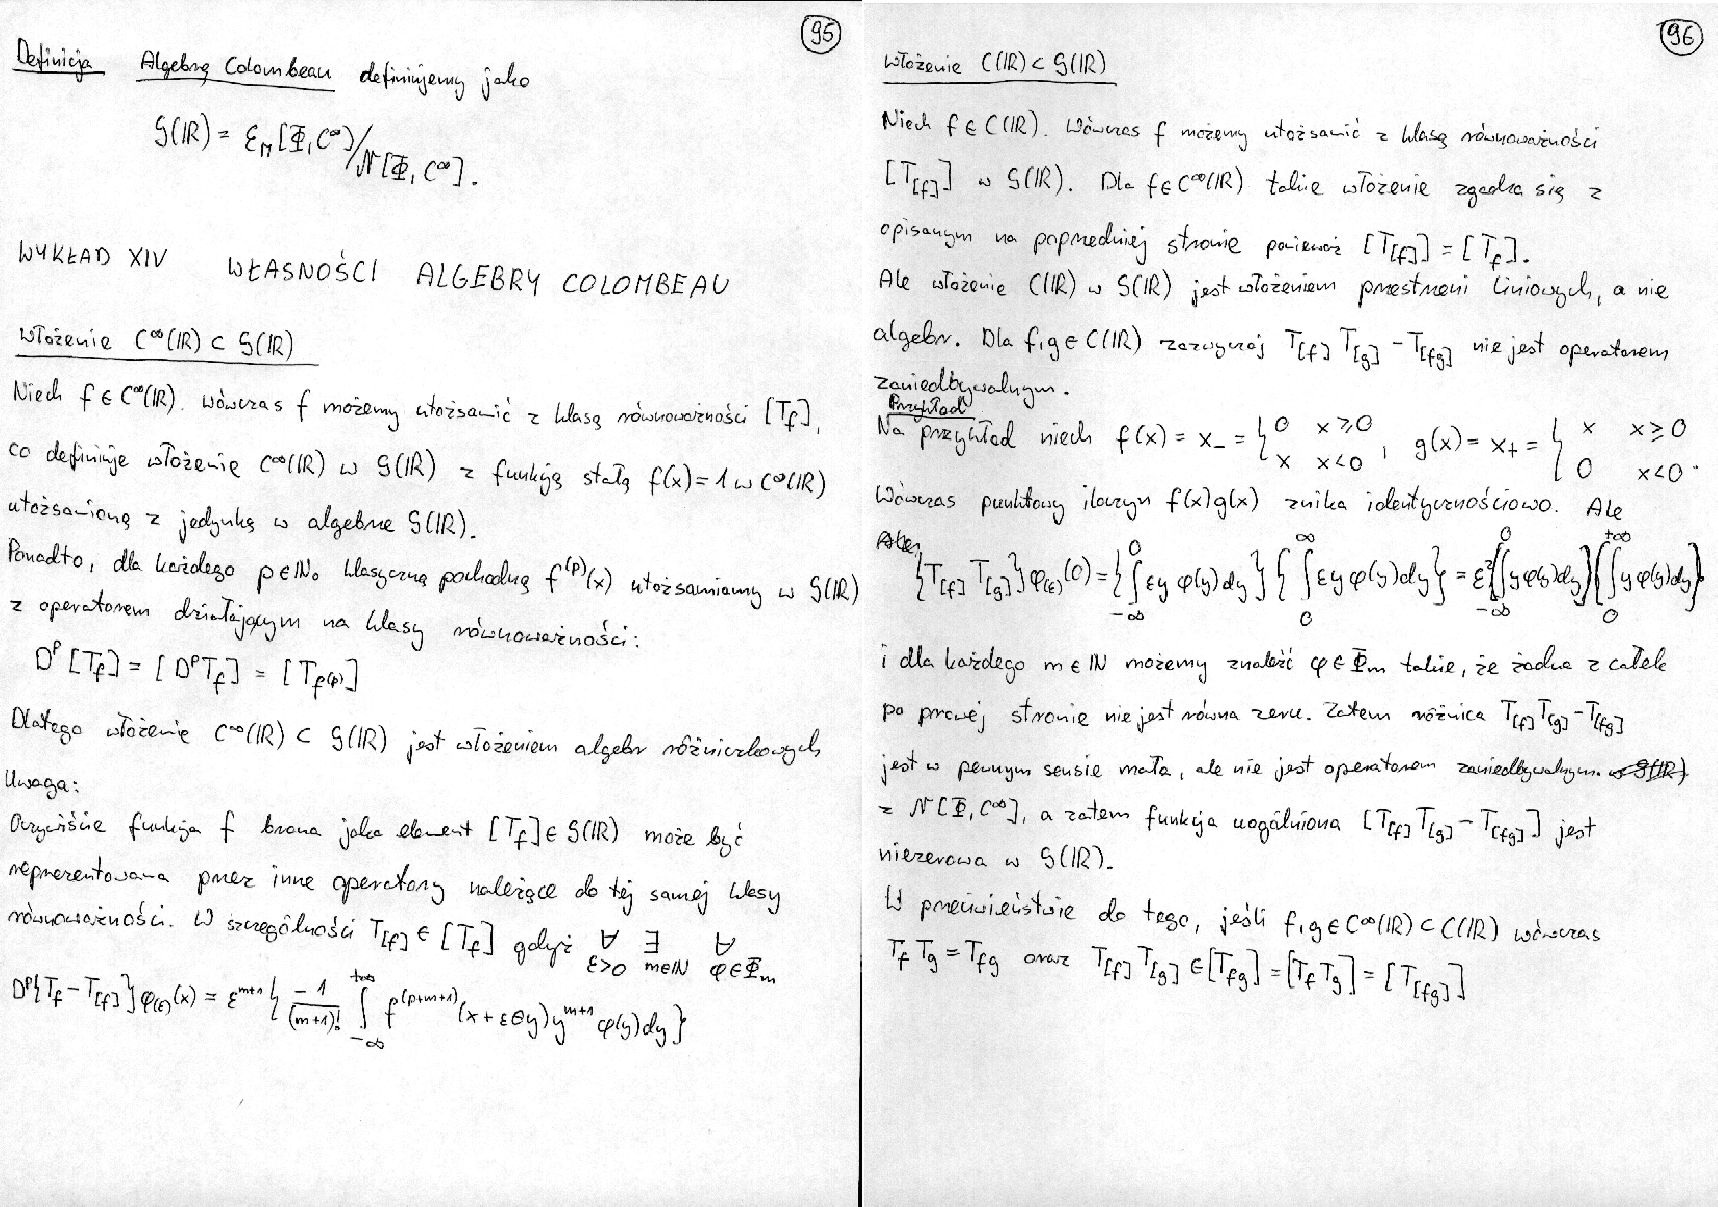 95
Definicja Algebrę Colombeau definiujemy jako
G(IR) = ℰ_M[Φ, C^∞) / N[Φ, C^∞].
WYKŁAD XIV WŁASNOŚCI ALGEBRY COLOMBEAU
Włożenie C^∞(IR) ⊂ G(IR)
Niech f ∈ C^∞(IR). Wówczas f możemy utożsamić z klasą równoważności [T_f],
co definiuje włożenie C^∞(IR) w G(IR) z funkcją stałą f(x)=1 w C^∞(IR)
utożsamioną z jedynką w algebrze G(IR).
Ponadto, dla każdego p ∈ IN₀ klasyczną pochodną f^(p)(x) utożsamiamy w G(IR)
z operatorem działającym na klasy równoważności:
D^p [T_f] = [D^p T_f] = [T_{f^(p)}]
Dlatego włożenie C^∞(IR) ⊂ G(IR) jest włożeniem algebr różniczkowych
Uwaga:
Oczywiście funkcja f brana jako element [T_f] ∈ G(IR) może być
reprezentowana przez inne operatory należące do tej samej klasy
równoważności. W szczególności T_[f] ∈ [T_f] gdyż ∀_{ε>0} ∃_{m∈IN} ∀_{φ∈Φ_m}
D^p{T_f − T_[f]}φ_(ε)(x) = ε^{m+1} { −1/(m+1)! ∫_{−∞}^{+∞} f^(p+m+1)(x+εθy) y^{m+1} φ(y) dy }
96
Włożenie C(IR) ⊂ G(IR)
Niech f ∈ C(IR). Wówczas f możemy utożsamić z klasą równoważności
[T_[f]] w G(IR). Dla f ∈ C^∞(IR) takie włożenie zgadza się z
opisanym na poprzedniej stronie ponieważ [T_[f]] = [T_f].
Ale włożenie C(IR) w G(IR) jest włożeniem przestrzeni liniowych, a nie
algebr. Dla f,g ∈ C(IR) zazwyczaj T_[f] T_[g] − T_[fg] nie jest operatorem
zaniedbywalnym.
Przykład
Na przykład niech f(x) = x₋ = { 0 x⩾0 ; x x<0 , g(x) = x₊ = { x x⩾0 ; 0 x<0 .
Wówczas punktowy iloczyn f(x)g(x) znika identycznościowo. Ale
Ale, {T_[f] T_[g]}φ_(ε)(0) = { ∫_{−∞}^{0} εy φ(y) dy } { ∫_{0}^{∞} εy φ(y) dy } = ε² { ∫_{−∞}^{0} y φ(y) dy } { ∫_{0}^{+∞} y φ(y) dy }
i dla każdego m ∈ IN możemy znaleźć φ ∈ Φ_m takie, że żadna z całek
po prawej stronie nie jest równa zeru. Zatem różnica T_[f] T_[g] − T_[fg]
jest w pewnym sensie mała, ale nie jest operatorem zaniedbywalnym. w G(IR)
z N[Φ, C^∞], a zatem funkcja uogólniona [T_[f] T_[g] − T_[fg]] jest
niezerowa w G(IR).
W przeciwieństwie do tego, jeśli f,g ∈ C^∞(IR) ⊂ C(IR) wówczas
T_f T_g = T_fg oraz T_[f] T_[g] ∈ [T_fg] = [T_f T_g] = [T_[fg]]